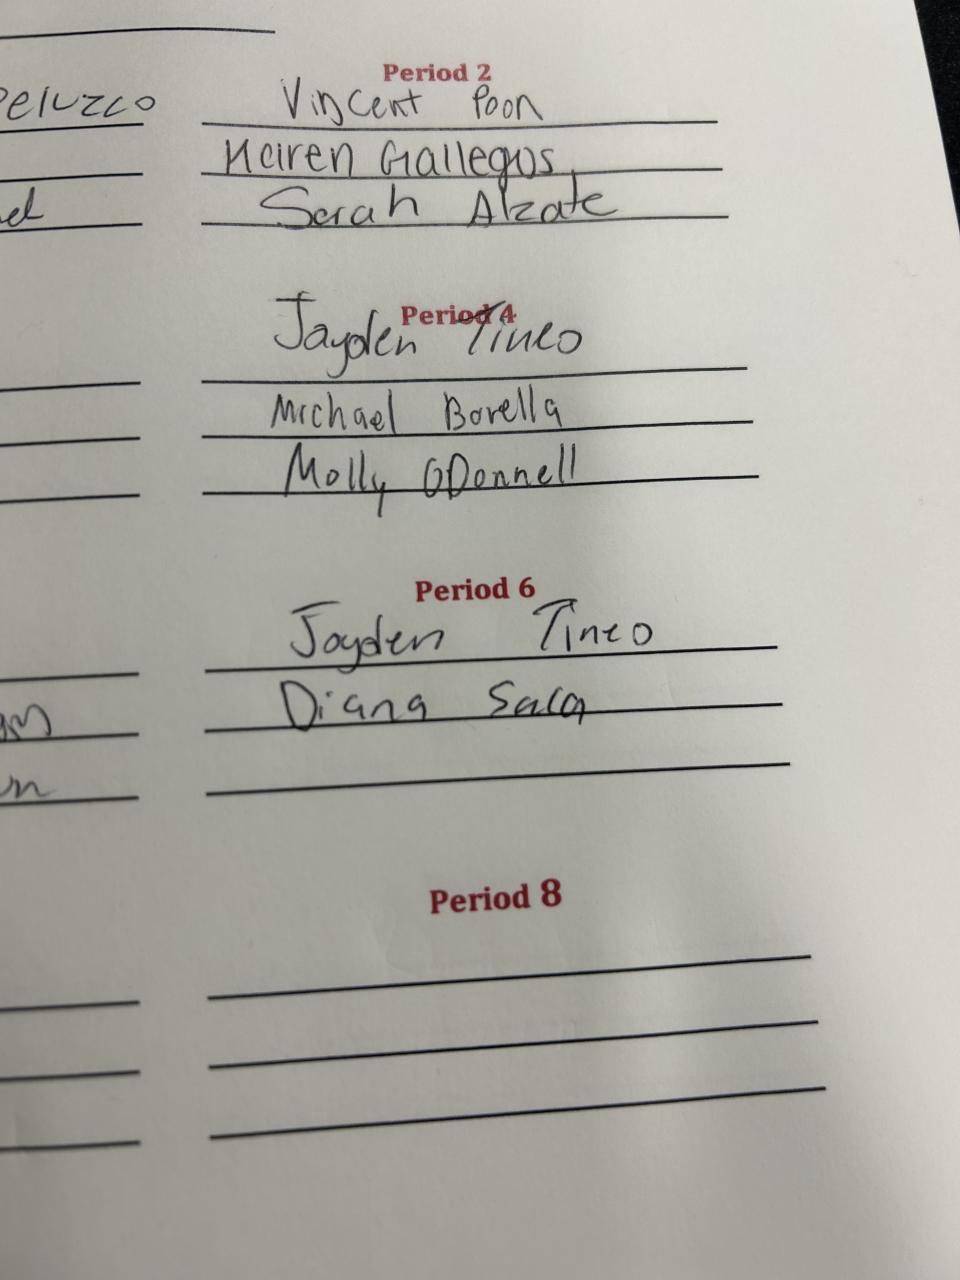 Period 2
Vincent Poon
Gallegos
Sarah Alzate
Period 4
Jayden Tineo
Michael Borella
Molly ODonnell
Period 6
Jayden Tineo
Diana Sala
Period 8